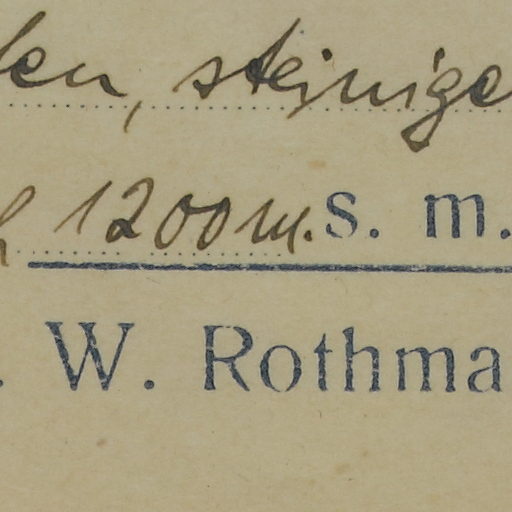 steinige
1200 m. s. m.
. W. Rothma